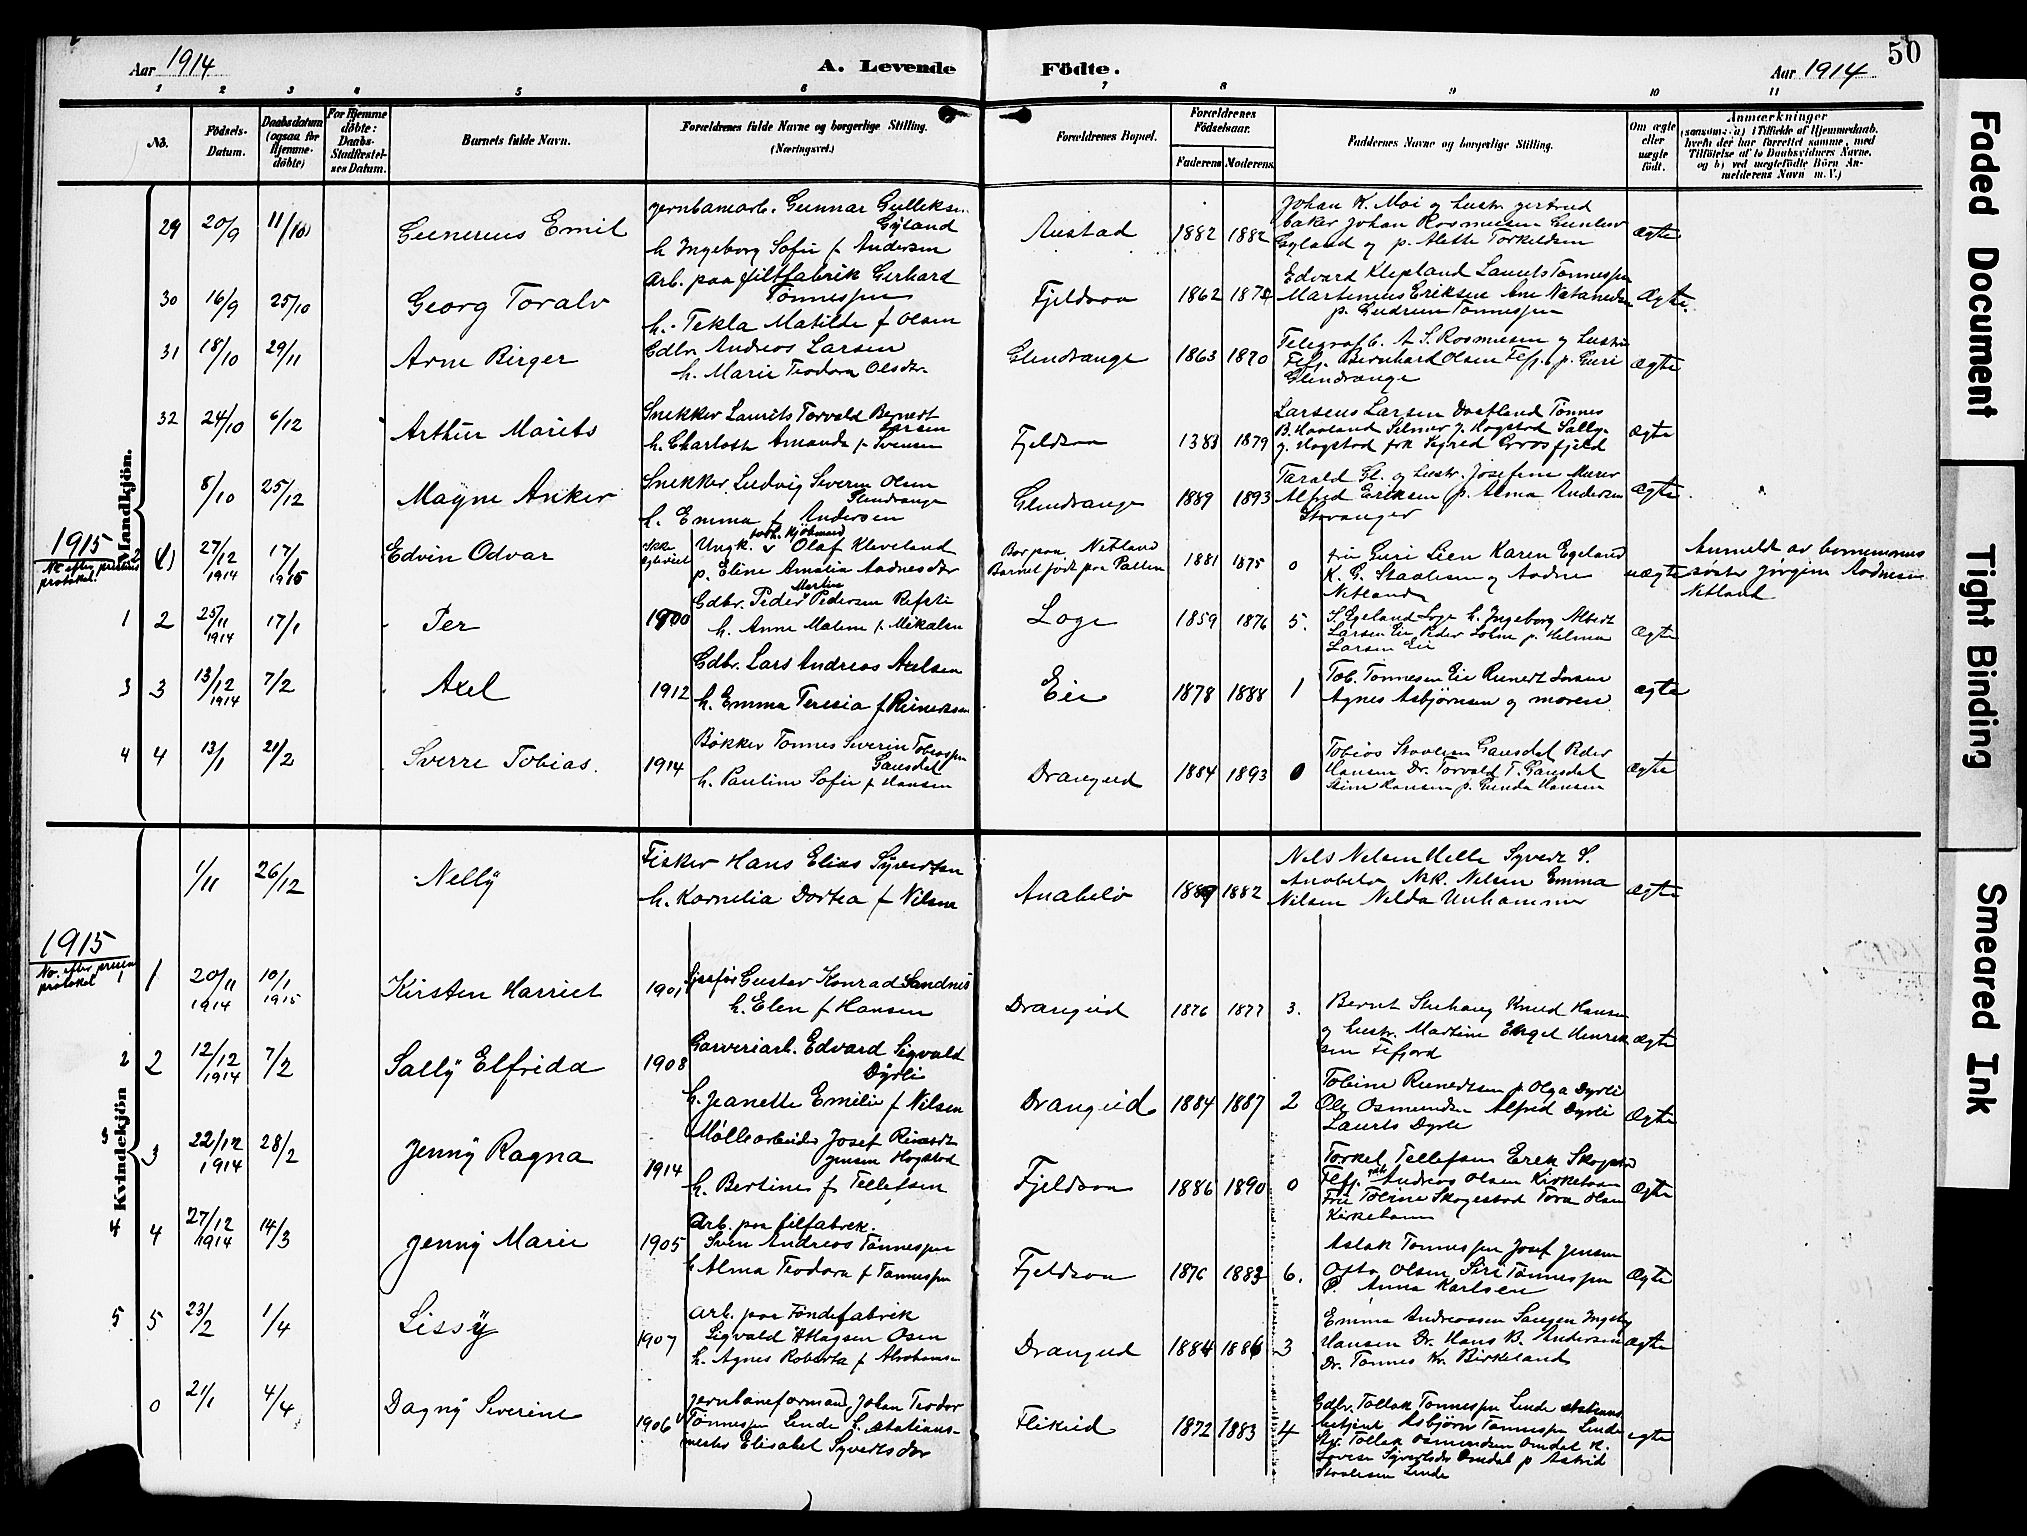 50
Aar 1914
A. Levende Födte.
Aar 1914
1 2 3 4 5 6 7 8 9 10 11
No.
Födsels-Datum.
Daabsdatum (ogsaa for Hjemme-döbte)
For Hjemme döbte: Daabs-Stadfæstel-ses Datum.
Barnets fulde Navn.
Forældrenes fulde Navne og borgerlige Stilling.
(Næringsvei.)
Forældrenes Bopæl.
Forældrenes Födselsaar.
Faderens Moderens
Faddernes Navne og borgerlige Stilling.
Om ægte eller uægte födt.
Anmærkninger
(saasom: a) i Tilfælde af Hjemmedaab,
hvem der har forrettet samme, med
Tilföielse af to Daabsvidners Navne,
og b) ved uægtefödte Börn An-
melderens Navn m. V.)
Mandkjön.
29 20/9 11/10 Gunerius Emil
jernbanearb. Gunnar Gulleksen
Gyland
h. Ingeborg Sofie f. Andersen
Austad 1882 1882
Johan K. Moi og hustr. Gertrud
baker Johan Rosmusen Gunleiv
Gyland og p. Alette Torkeldsen
ægte
30 16/9 25/10 Georg Toralv
Arb. paa filtfabrik Gerhard
Tønnessen
h. Tekla Matilde f Olsen
Fjeldsaa 1862
Edvard Klepland Laurits Tønnessen
Martinius Eriksen
p. Gudrun Tønnessen
Ægte.
31 18/10 29/11 Arne Birger
Gdbr. Andreas Larsen
h. Marie Teodora Olsdtr.
Glendrange 1863 1870
Telegrafb. A. S. Rosmusen og hustru
Flefj. Bernhard Olsen Flefj. p. Guri
Glendrange
ægte
32 24/10 6/12 Arthur Morits
Snekker Laurits Torvald Berntdt
Larsen
h. Charloth Amanda f. Svensen
Fjeldsaa 1383 1879
Larseus Larsen Tønnes
B. Haaland Selmer J. Hogstad Sally
J. Hogstad frk Sigred Grosfjeld
ægte
8/10 25/12 Magne Anker
Snekker Ludvig Severin Olsen
Glendrange
h. Emma f Andersen
Glendrange 1889 1893
Tarald Gl. og hustr. Josefine Murer
Alfred Eriksen p. Alma Andersen
Stavanger
ægte
1915
No. efter præstens protokol.
2 (1) 27/12 1914 17/1 1915 Edvin Odvar
Ikke egteviet
Ungk. Olaf Kleveland
p. Eline Amalia Aadnesdtr
Bor paa Netland
Barnet født paa
1881 1875 0
fru Guri Lien Karen Egeland
K. G. Staalesen og Aadne
Netland
uægte
Anmeldt av
søster Jørgine Aadnesen
Netland
1 2 25/11 1914 17/1 Per
1900
Gdbr. Peder Martin Pedersen Refsti
h. Anne Malene f. Mikalsen
Loge 1859 1876 5.
S. Egeland Loge h. Ingeborg Albert
Larsen Eie Peder p. Helma
Larsen Eie
ægte
3 3 13/12 1914 7/2 Axel
1912
Gdbr. Lars Andreas Axelsen
h. Emma Teresia f Reinertsen
Eie 1878 1888 1
Tob. Tønnesen Eie Reinert Larsen
Agnes Asbjørnsen og moren
ægte
4 4 13/1 21/2 Sverre Tobias.
1914
Bøkker Tønnes Severin Tobiassen
Gausdal
h. Pauline Sofie f Hansen
Drangeid 1884 1893 0
Tobias Staalesen Gausdal Peder
Hansen Dr. Torvald T. Gausdal
Hansen p. Gunda Hansen
ægte
Kvindekjön
1/11 26/12 Nelly
Fisker Hans Elias Syvertsen
h. Kornelia Dortea f Nilsen
Anabelø 1889 1882
Nels Nelsen Helle Syvert S.
Anabelø Nelsen Emma
Nilsen Nelda Unhammer
ægte
1915
No. efter præstens protokol
1 1 20/11 1914 10/1 1915 Kirsten Harriet
1901
Gustav Konrad Sandnes
h. Elen f Hansen
Drangeid 1876 1877 3.
Bernt Knud Hansen
og hustr. Martine Engel Henrik
sen Flefjord
ægte
2 2 12/12 1914 7/2 Sally Elfrida
1908
Garveriarb. Edvard Sigvald
Dyrli
h. Jeanette Emilie f Nilsen
Drangeid 1884 1887 2
Tobine Reinertsen p. Olga Dyrli
Ole Osmundsen Alfred Dyrli
Laurits Dyrli
Ægte
3 3 22/12 1914 28/2 Jenny Ragna
1914
Møllearbeider Josef Reinert
Jensen Hogstad
h. Bertine f. Tellefsen
Fjeldsaa 1886 1890 0
Torkel Tellefsen Erek Skogestad
Flefj. Andreas Olsen Kirkehavn
Fru Tobine Skogestad Tora Olsen
Kirkehavn
Ægte
4 4 27/12 1914 14/3 Jenny Marie
1905
Arb. paa filfabrik.
Sven Andreas Tønnessen
h Alma Teodora f Tønnessen
Fjeldsaa 1876 1883 6.
Aslak Tønnessen Josef Jensen
Otto Olsen Siri Tønnessen
Anna Karlsen
Ægte
5 5 23/2 1/4 Lissy
1907
Arb. paa Tøndefabrik
Sigvald Hagen Osen
h. Agnes Roberta f Abrahamsen
Drangeid 1884 1886 3
Emma Andreassen Ingeb.
Hansen Dr. Hans B. Andersen
Dr. Tønnes Kr. Birkeland
ægte
0 21/1 4/4 Dagny Severine
1906
Jernbaneformand Johan Teodor
Tønnessen Linde h. stations-
mester Elisabet Syvertsdtr
Flikeid 1872 1883 4
Gdbr. Tollak Tønnessen Linde stations
betjent Asbjørn Tønnessen Linde
Tollak Osmundsen Omdal h.
Lovise Syvertsdtr Omdal p Astrid
Staalesen Linde
egte
Faded Document
Tight Binding
Smeared Ink